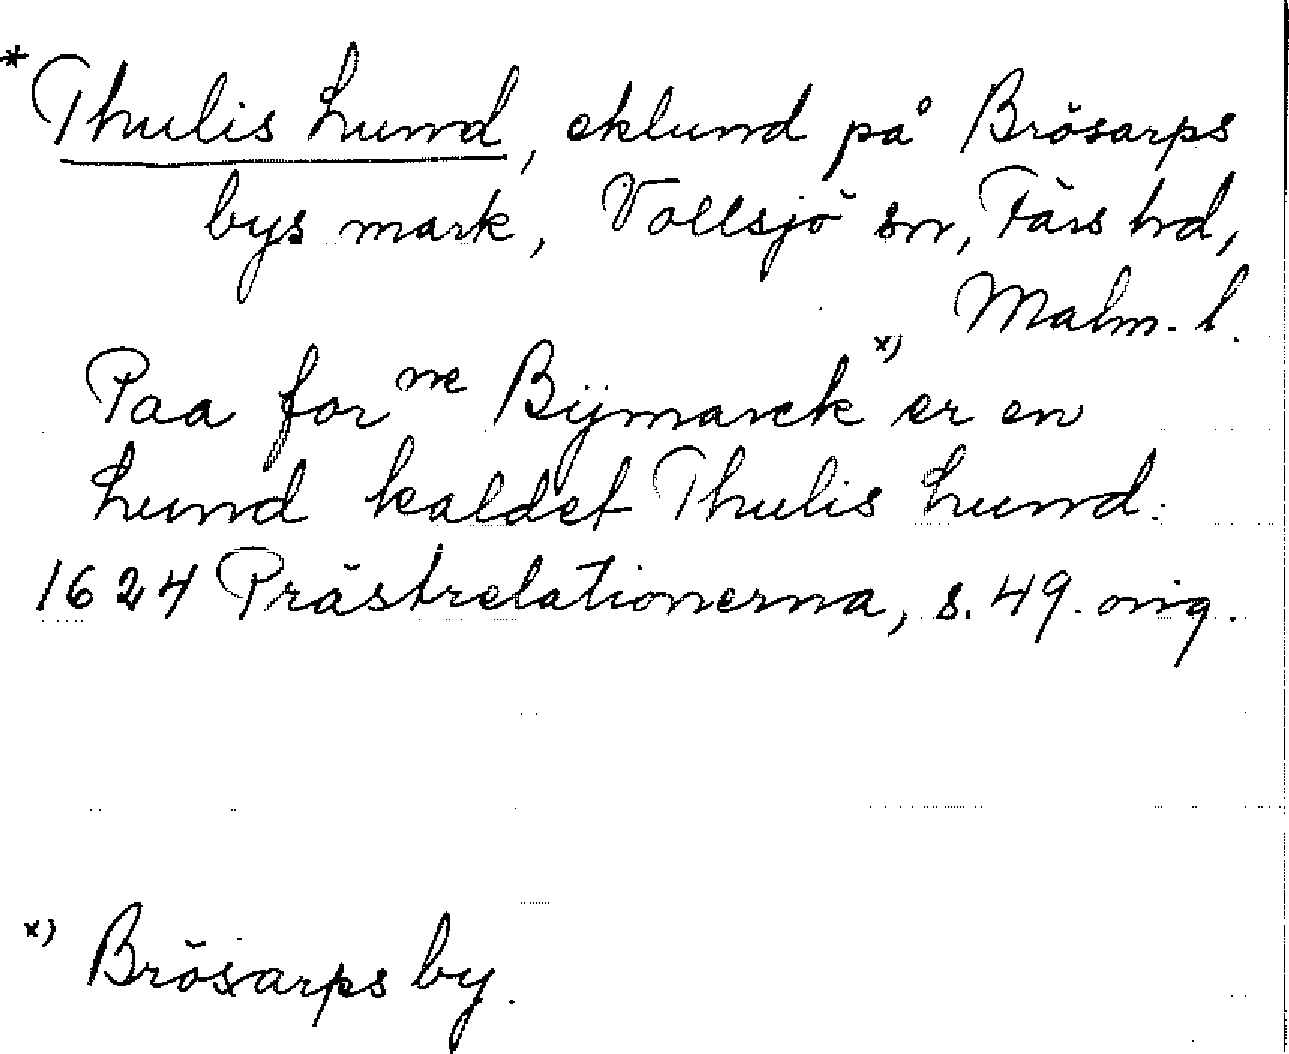 * Thulis Lund, eklund på Brösarps
bys mark, Vollsjö sn, Färs hd,
Malm. l.
Paa for ne Bÿmarck x) er en
Lund kaldet Thulis Lund:
1624 Prästrelationerna, s. 49. orig.
x) Brösarps by.